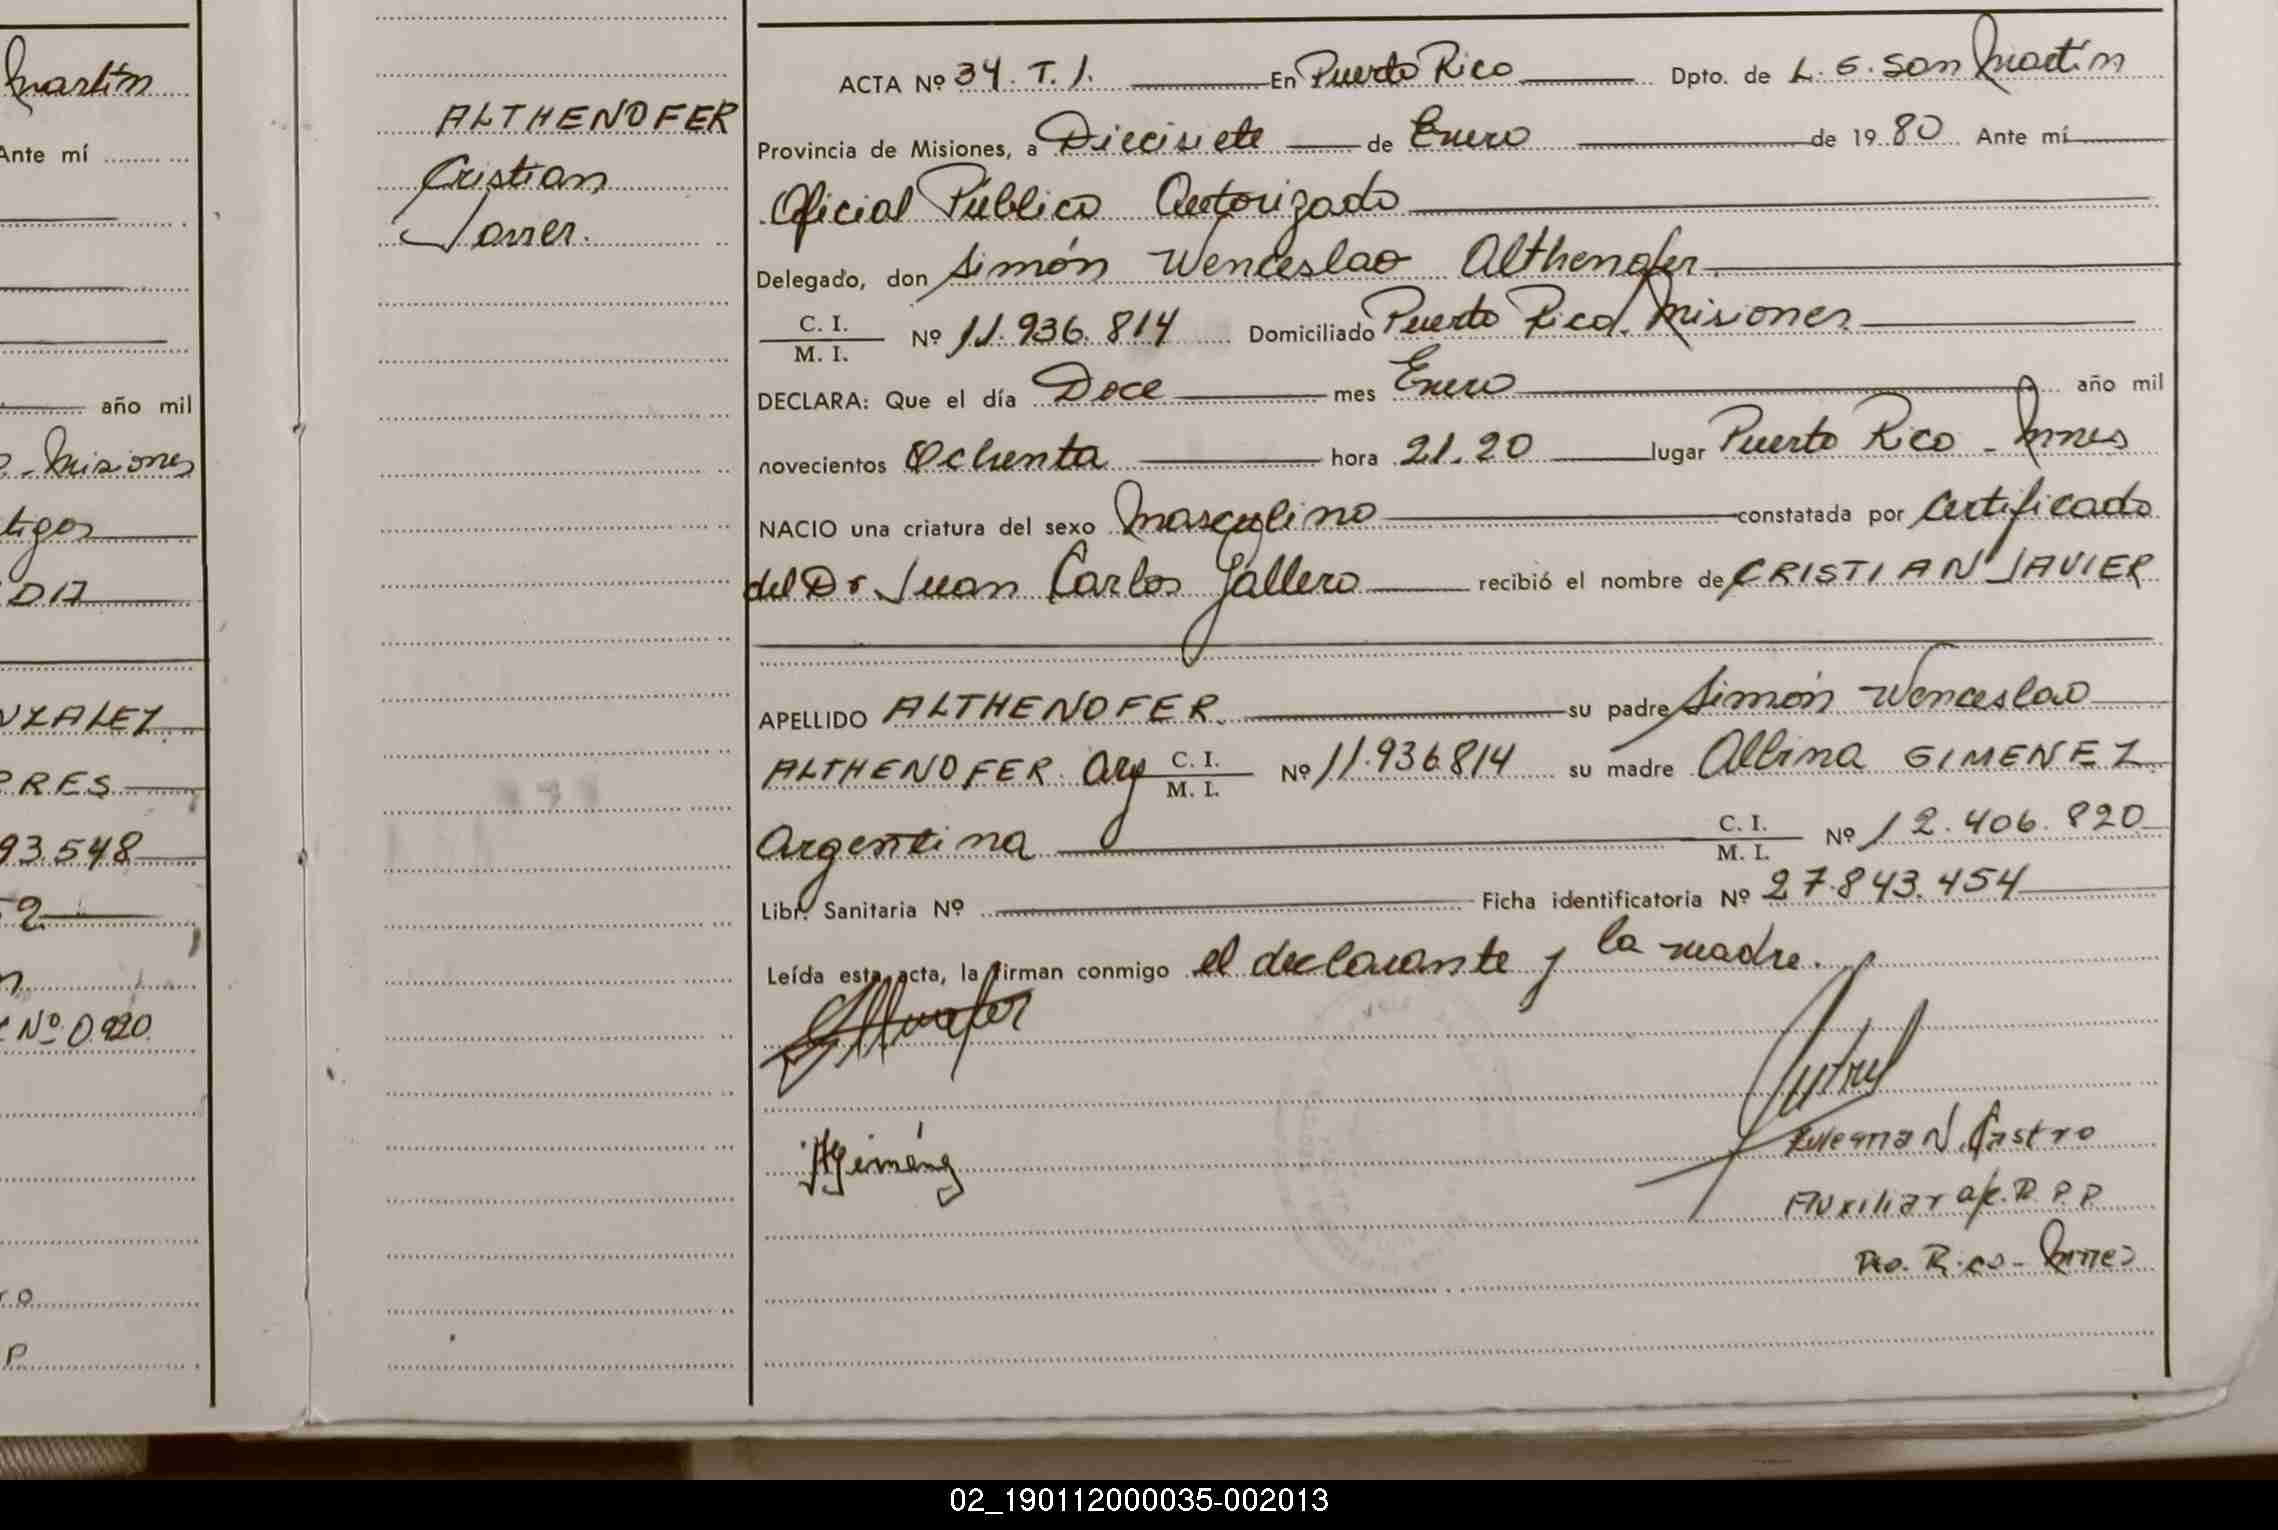 Martín
Ante mí
año mil
- Misiones
tigos
DIA
NZALEZ
PRES
93.548
2
Nº 0.920
ro
P
ALTHENOFER
Cristian
Javier.
ACTA Nº 34. T. 1. En Puerto Rico Dpto. de L. G. San Martín
Provincia de Misiones, a Diecisiete de Enero de 1980 Ante mí
Oficial Público Autorizado
Delegado, don Simón Wenceslao Althenofer
C. I.
M. I. Nº 11.936.814 Domiciliado Puerto Rico. Misiones
DECLARA: Que el día Doce mes Enero año mil
novecientos Ochenta hora 21.20 lugar Puerto Rico - Mnes
NACIO una criatura del sexo masculino constatada por certificado
del Dr Juan Carlos Gallero recibió el nombre de CRISTIAN JAVIER
APELLIDO ALTHENOFER. su padre Simón Wenceslao
ALTHENOFER Arg C. I.
M. I. Nº 11.936.814 su madre Albina GIMENEZ
Argentina C. I.
M. I. Nº 12.406.820
Libr. Sanitaria Nº Ficha identificatoria Nº 27.843.454
Leída esta acta, la firman conmigo el declarante y la madre.
AGiménez
N. Castro
Auxiliar a/c. D. P. P.
Pto. Rico - Mnes
02_190112000035-002013